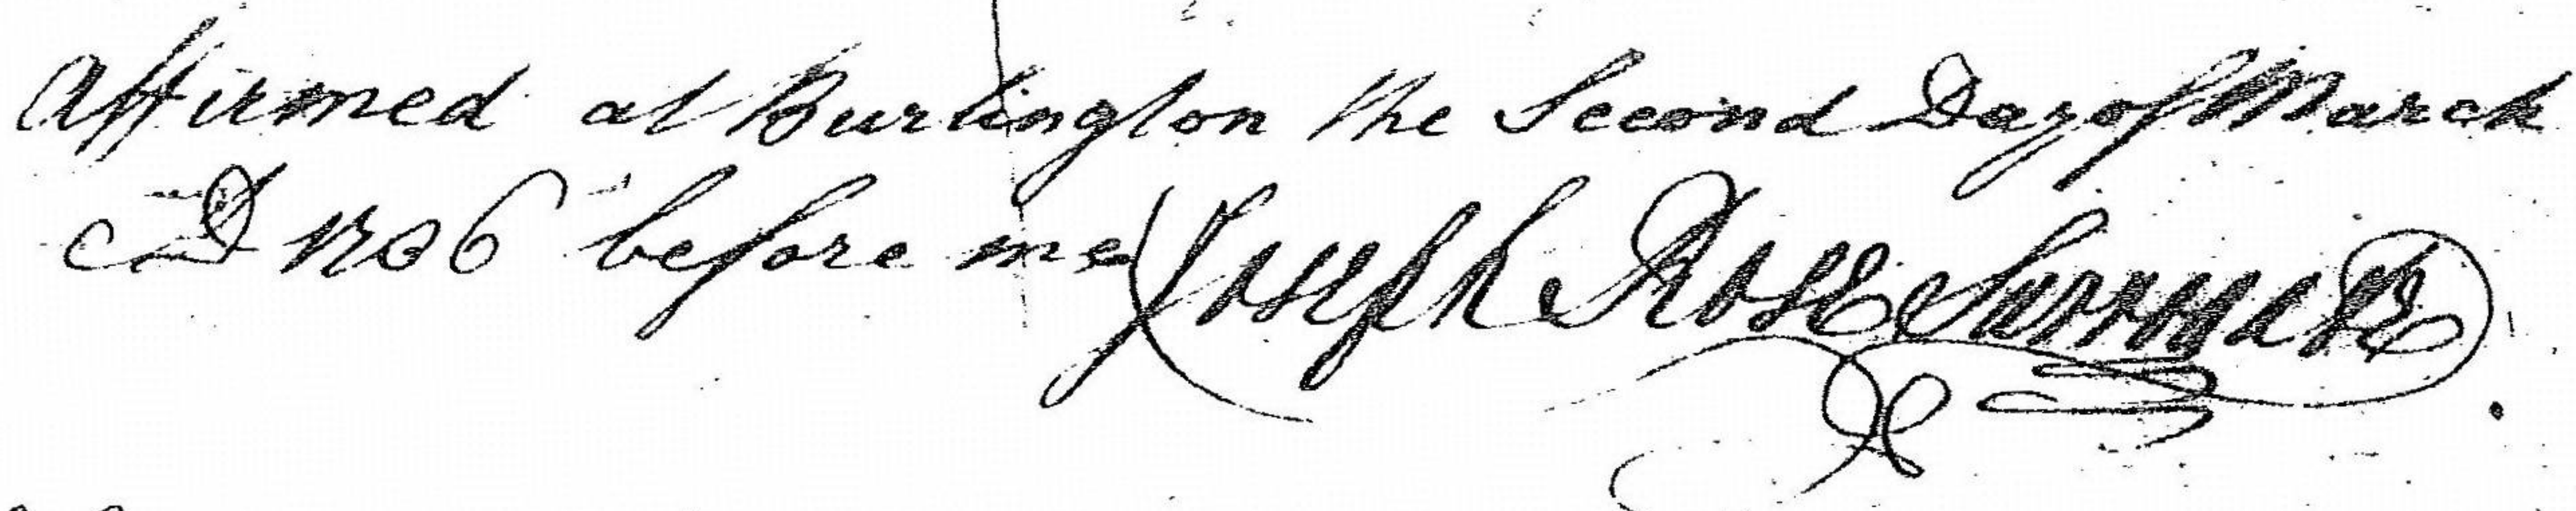 Affirmed at Burlington the Second Day of March
AD 1706 before me Joseph Rose Surrogate